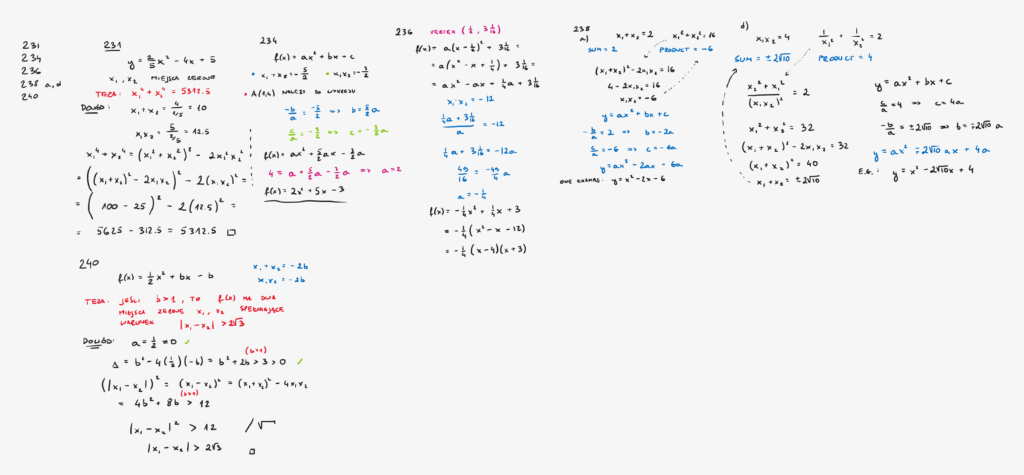 231
234
236
238 a,d
240
231
y = 2/5 x² - 4x + 5
x₁, x₂ MIEJSCA ZEROWE
TEZA: x₁⁴ + x₂⁴ = 5312.5
DOWÓD: x₁ + x₂ = 4/(2/5) = 10
x₁x₂ = 5/(2/5) = 12.5
x₁⁴ + x₂⁴ = (x₁² + x₂²)² - 2x₁²x₂²
= ((x₁+x₂)² - 2x₁x₂)² - 2(x₁x₂)² =
= (100 - 25)² - 2(12.5)² =
= 5625 - 312.5 = 5312.5 □
234
f(x) = ax² + bx + c
• x₁ + x₂ = -5/2 • x₁x₂ = -3/2
• A(1,4) NALEŻY DO WYKRESU
-b/a = -5/2 => b = 5/2 a
c/a = -3/2 => c = -3/2 a
f(x) = ax² + 5/2 ax - 3/2 a
4 = a + 5/2 a - 3/2 a => a = 2
f(x) = 2x² + 5x - 3
236 VERTEX (1/2, 3 1/16)
f(x) = a(x - 1/2)² + 3 1/16 =
= a(x² - x + 1/4) + 3 1/16 =
= ax² - ax + 1/4 a + 3 1/16
x₁x₂ = -12
(1/4 a + 3 1/16)/a = -12
1/4 a + 3 1/16 = -12a
49/16 = -49/4 a
a = -1/4
f(x) = -1/4 x² + 1/4 x + 3
= -1/4 (x² - x - 12)
= -1/4 (x-4)(x+3)
238
a) x₁ + x₂ = 2 x₁² + x₂² = 16
SUM = 2 PRODUCT = -6
(x₁+x₂)² - 2x₁x₂ = 16
4 - 2x₁x₂ = 16
x₁x₂ = -6
y = ax² + bx + c
-b/a = 2 => b = -2a
c/a = -6 => c = -6a
y = ax² - 2ax - 6a
ONE EXAMPLE: y = x² - 2x - 6
d)
x₁x₂ = 4 1/x₁² + 1/x₂² = 2
SUM = ±2√10 PRODUCT = 4
(x₂² + x₁²)/(x₁x₂)² = 2
x₁² + x₂² = 32
(x₁ + x₂)² - 2x₁x₂ = 32
(x₁ + x₂)² = 40
x₁ + x₂ = ±2√10
y = ax² + bx + c
c/a = 4 => c = 4a
-b/a = ±2√10 => b = ∓2√10 a
y = ax² ∓ 2√10 ax + 4a
E.G.: y = x² - 2√10x + 4
240
f(x) = 1/2 x² + bx - b
x₁ + x₂ = -2b
x₁x₂ = -2b
TEZA: JEŚLI b > 1, TO f(x) MA DWA
MIEJSCA ZEROWE x₁, x₂ SPEŁNIAJĄCE
WARUNEK |x₁ - x₂| > 2√3
DOWÓD: a = 1/2 ≠ 0 ✓
(b>1)
Δ = b² - 4(1/2)(-b) = b² + 2b > 3 > 0 ✓
(|x₁ - x₂|)² = (x₁ - x₂)² = (x₁+x₂)² - 4x₁x₂
(b>1)
= 4b² + 8b > 12
|x₁ - x₂|² > 12 /√
|x₁ - x₂| > 2√3 □